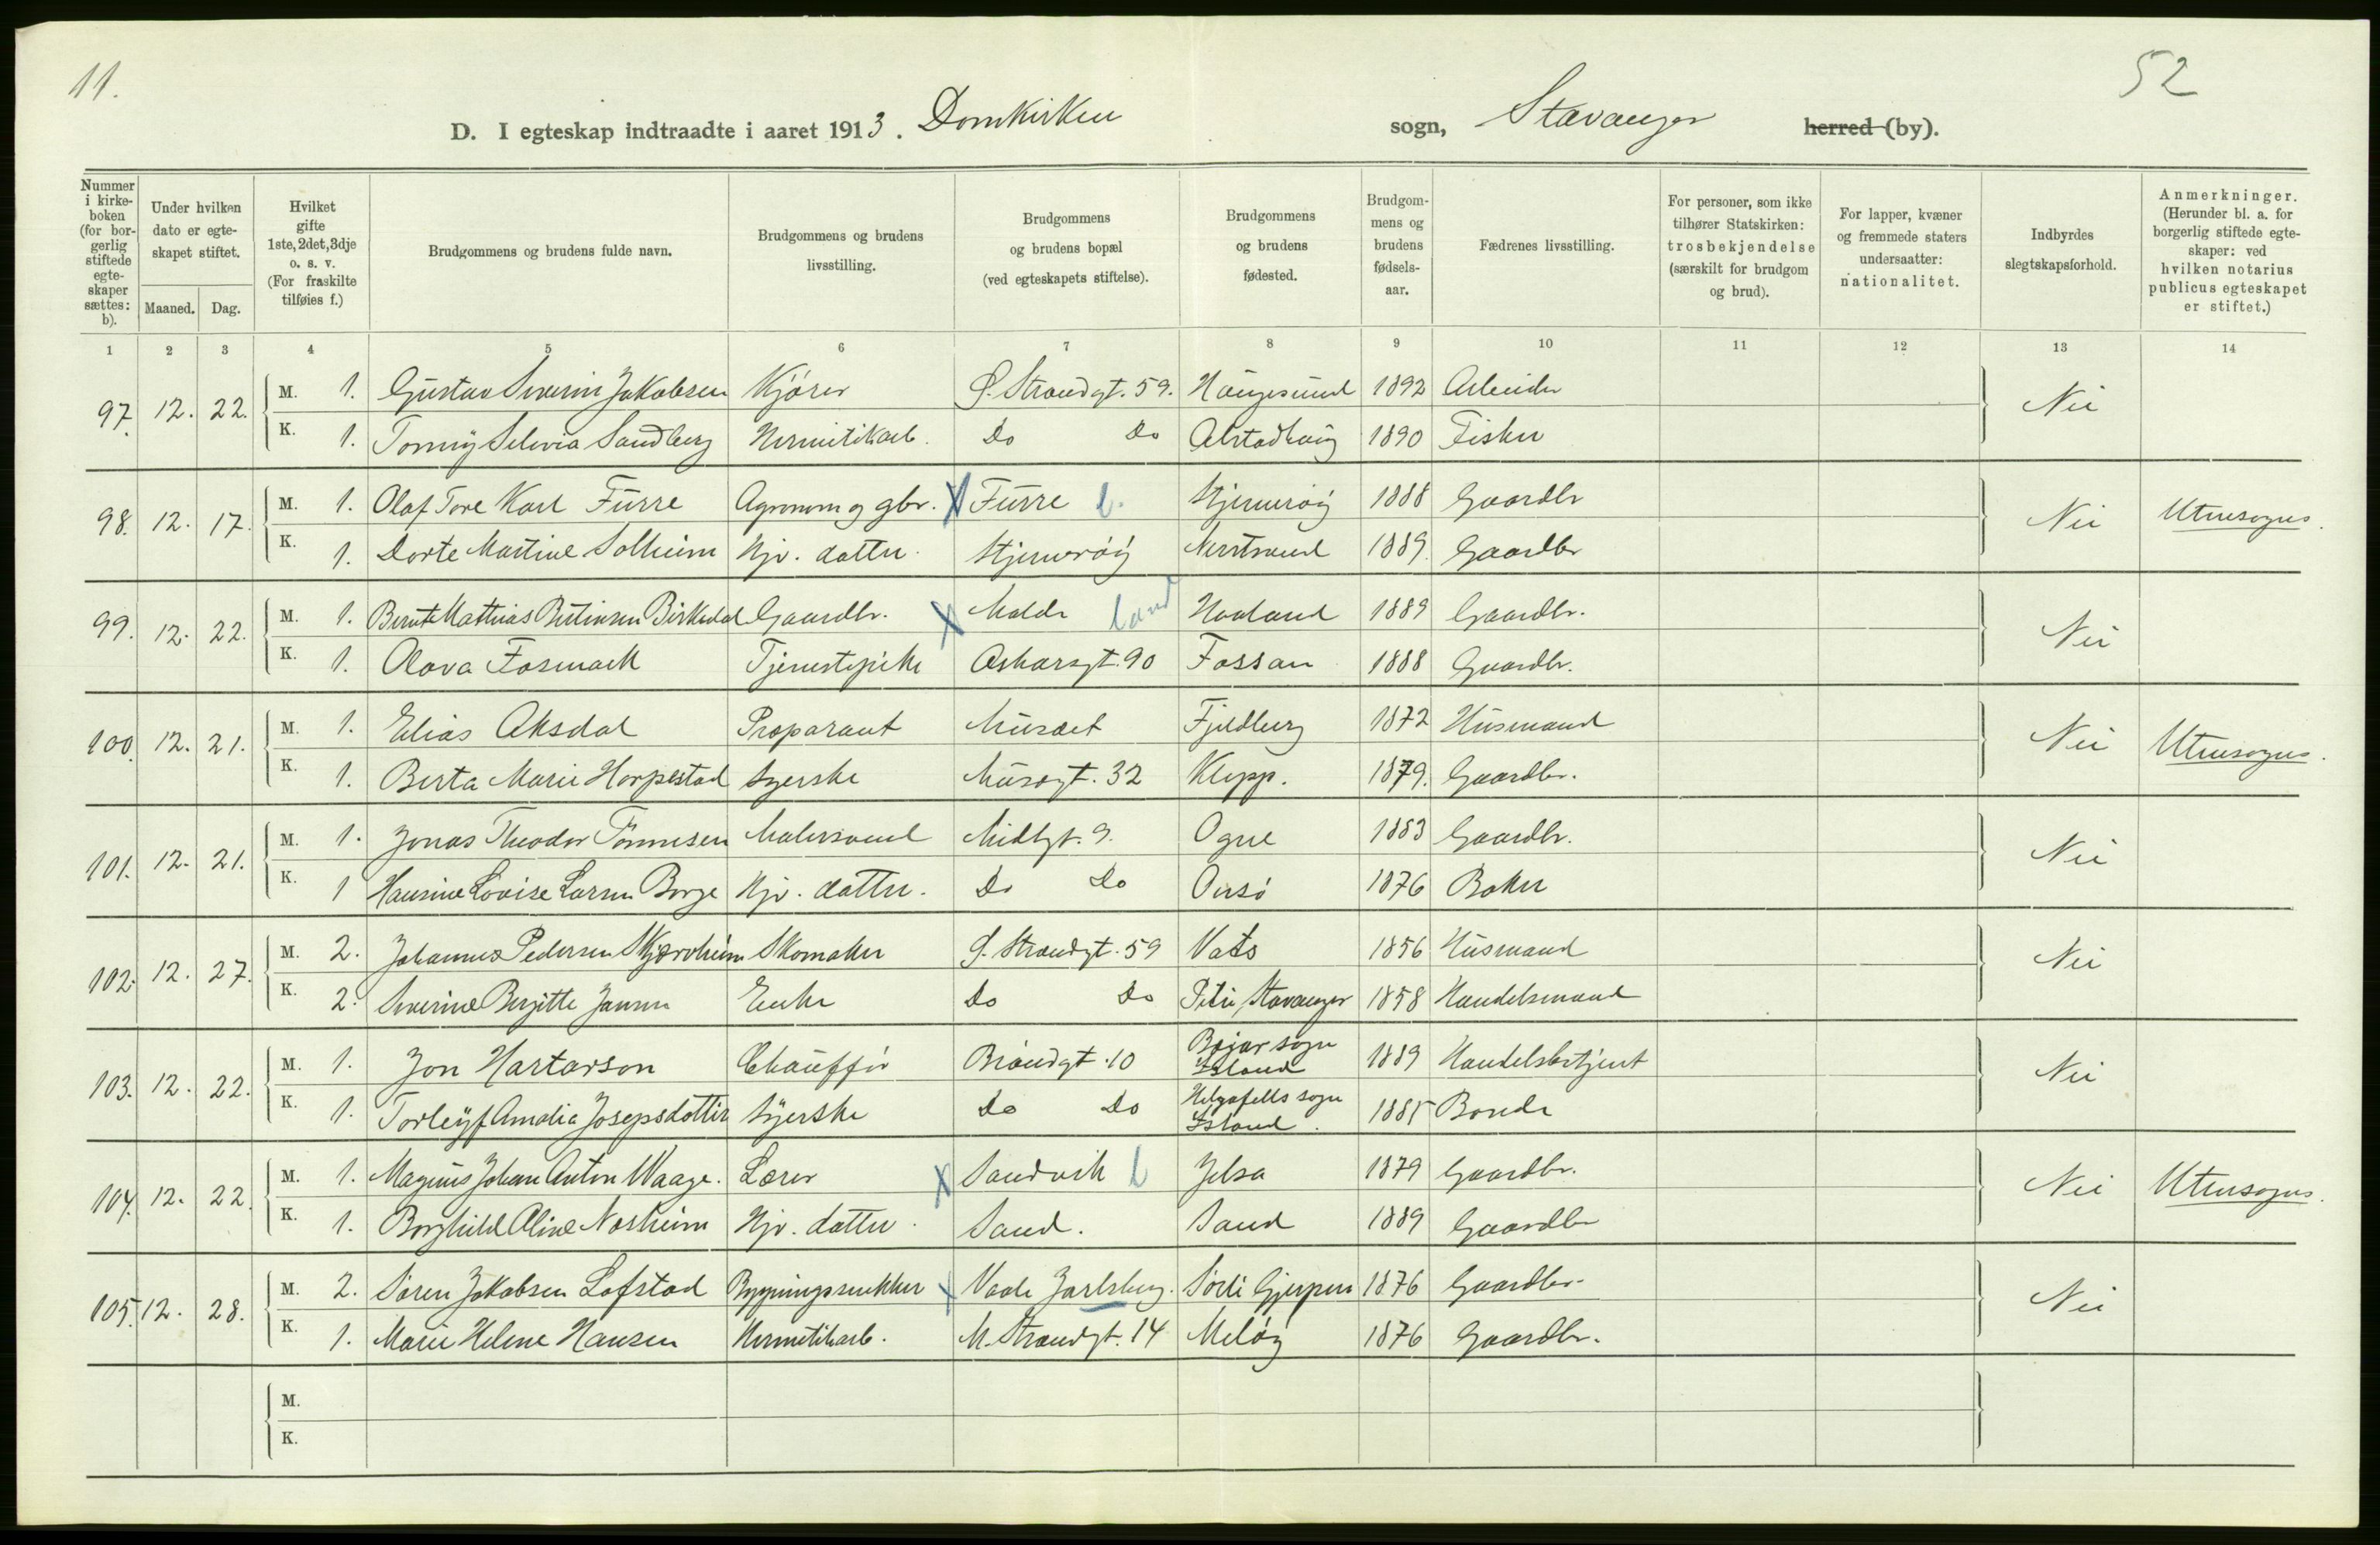 11.
52
D. I egteskap indtraadte i aaret 1913. Domkirken sogn, Stavanger herred (by).
Nummer i kirkeboken (for borgerlig stiftede egteskaper sættes: b).
Under hvilken dato er egteskapet stiftet.
Maaned. Dag.
Hvilket gifte 1ste, 2det, 3dje o. s. v. (For fraskilte tilføies f.)
Brudgommens og brudens fulde navn.
Brudgommens og brudens livsstilling.
Brudgommens og brudens bopæl (ved egteskapets stiftelse).
Brudgommens og brudens fødested.
Brudgommens og brudens fødsels-aar.
Fædrenes livsstilling.
For personer, som ikke tilhører Statskirken: trosbekjendelse (særskilt for brudgom og brud).
For lapper, kvæner og fremmede staters undersaatter: nationalitet.
Indbyrdes slegtskapsforhold.
Anmerkninger. (Herunder bl. a. for borgerlig stiftede egteskaper: ved hvilken notarius publicus egteskapet er stiftet.)
1 2 3 4 5 6 7 8 9 10 11 12 13 14
97. 12. 22. M. 1. Gustav Severin Jakobsen Kjører Ø. Strandgt. 59. Haugesund 1892 Arbeider Nei
K. 1. Tonny Selevia Sandberg Hermetikarb. Do Do Alstadhaug 1890 Fisker
98. 12. 17. M. 1. Olaf Tore Karl Furre Agronom og gbr. X Furre l. Stjernerøy 1888 Gaardbr Nei Utensogns.
K. 1. Dorte Martine Solheim Hjv. datter. Stjernerøy Nerstrand 1889. Gaardbr
99. 12. 22. M. 1. Bernt Mathias Bertinsen Birkedal Gaardbr. X Malde land Haaland 1889 Gaardbr. Nei
K. 1. Olava Fosmark Tjenestepike Oskarsgt. 90 Fossan 1888 Gaardbr.
100. 12. 21. M. 1. Elias Aksdal Præparant Museet Fjeldberg 1872 Husmand Nei Utensogns.
K. 1. Berta Marie Horpestad Syerske Musegt. 32 Klepp. 1879. Gaardbr.
101. 12. 21. M. 1. Jonas Theodor Tönnesen Malersvend Midtgt. 9. Ogne 1883 Gaardbr. Nei
K. 1 Hansine Lovise Larsen Borge Hjv. datter. Do Do Onsö 1876 Baker
102. 12. 27. M. 2. Johannes Pedersen Skjærvheim Skomaker Ø. Strandgt. 59 Vats 1856 Husmand Nei
K. 2. Severine Bergitte Jansen Enke Do Do Petri, Stavanger 1858 Handelsmand
103. 12. 22. M. 1. Jon Hartarson Chauffør Brandgt. 10 Bæjar sogn Island 1889 Handelsbetjent Nei
K. 1. Torleyf Amalia Josepsdottir Syerske Do Do Helgafells sogn Island. 1885 Bonde
104. 12. 22. M. 1. Magnus Johan Anton Waage. Lærer X Sandvik l Jelsa 1879 Gaardbr. Nei Utensogns.
K. 1. Borghild Aline Nasheim Hjv. datter. Sand. Sand 1889 Gaardbr
105. 12. 28. M. 2. Søren Jakobsen Lofstad Bygningssnekker X Vaale Jarlsberg. Sörli Gjerpen 1876 Gaardbr. Nei
K. 1. Marie Helene Hansen Hermetikarb. N. Strandgt. 14 Meløy 1876 Gaardbr.
M.
K.